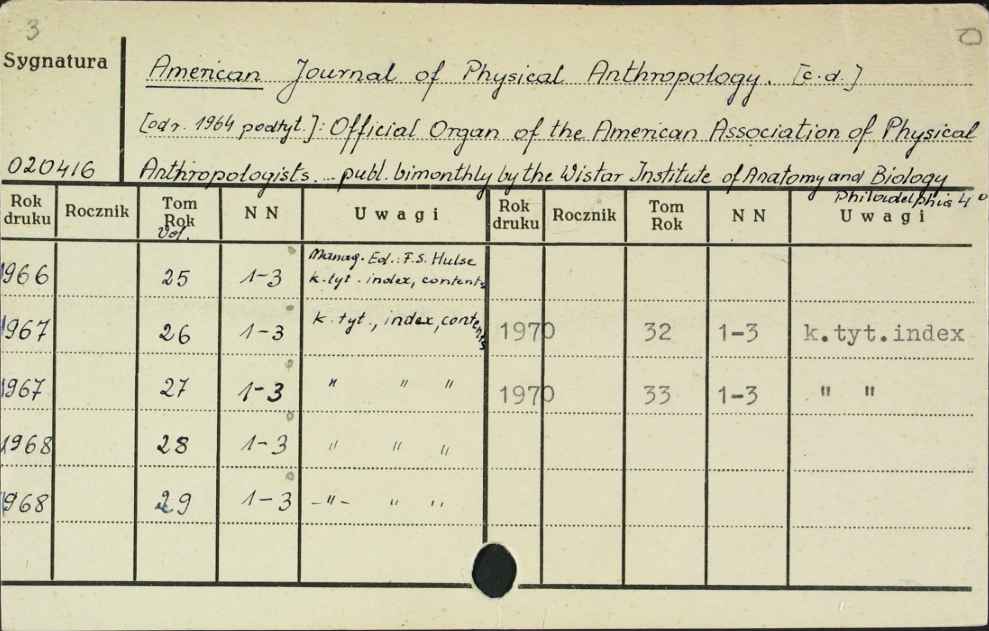 3
Sygnatura American Journal of Physical Anthropology. [c.d.]
[od r. 1964 podtyt.]: Official Organ of the American Association of Physical
020416 Anthropologists. ... publ. bimonthly by the Wistar Institute of Anatomy and Biology
Philadelphia 4°
Rok druku Rocznik Tom Rok Vol. N N Uwagi Rok druku Rocznik Tom Rok N N Uwagi
1966 25 1-3 Manag. Ed.: F.S. Hulse
k. tyt. index, contents
1967 26 1-3 k. tyt., index, contents 1970 32 1-3 k.tyt.index
1967 27 1-3 " " " 1970 33 1-3 " "
1968 28 1-3 " " "
1968 29 1-3 -"- " "